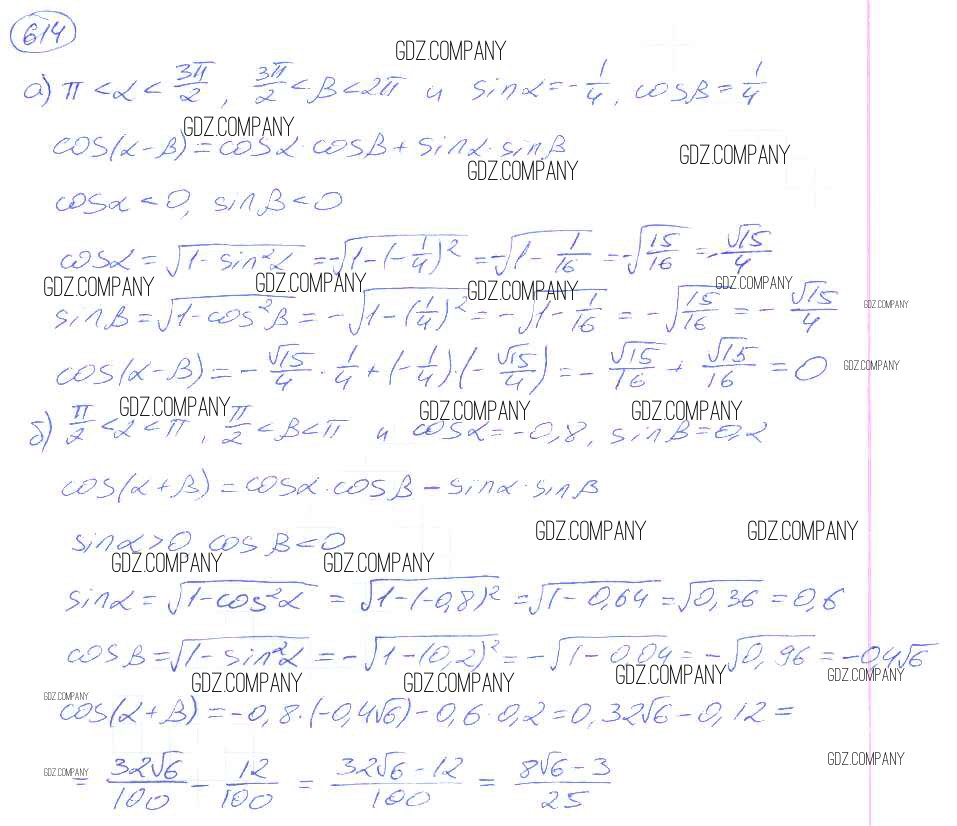 614
GDZ.COMPANY
а) π < α < 3π/2 , 3π/2 < β < 2π и sinα = -1/4 , cosβ = 1/4
GDZ.COMPANY
cos(α-β) = cosα·cosβ + sinα·sinβ
GDZ.COMPANY GDZ.COMPANY
cosα < 0, sinβ < 0
cosα = √(1-sin²α) = -√(1-(-1/4)²) = -√(1-1/16) = -√(15/16) = -√15/4
GDZ.COMPANY GDZ.COMPANY GDZ.COMPANY GDZ.COMPANY
sinβ = √(1-cos²β) = -√(1-(1/4)²) = -√(1-1/16) = -√(15/16) = -√15/4
GDZ.COMPANY
cos(α-β) = -√15/4 · 1/4 + (-1/4)·(-√15/4) = -√15/16 + √15/16 = 0
GDZ.COMPANY
GDZ.COMPANY GDZ.COMPANY GDZ.COMPANY
б) π/2 < α < π , π/2 < β < π и cosα = -0,8, sinβ = 0,2
cos(α+β) = cosα·cosβ - sinα·sinβ
GDZ.COMPANY GDZ.COMPANY
sinα > 0 cosβ < 0
GDZ.COMPANY GDZ.COMPANY
sinα = √(1-cos²α) = √(1-(-0,8)²) = √(1-0,64) = √0,36 = 0,6
cosβ = √(1-sin²α) = -√(1-(0,2)²) = -√(1-0,04) = -√0,96 = -0,4√6
GDZ.COMPANY GDZ.COMPANY GDZ.COMPANY GDZ.COMPANY
GDZ.COMPANY
cos(α+β) = -0,8·(-0,4√6) - 0,6·0,2 = 0,32√6 - 0,12 =
GDZ.COMPANY GDZ.COMPANY
= 32√6/100 - 12/100 = (32√6-12)/100 = (8√6-3)/25